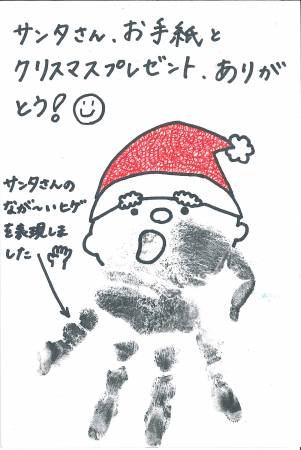 サンタさん、お手紙と
クリスマスプレゼント、ありが
とう!
サンタさんの
なが〜いヒゲ
を表現しま
した